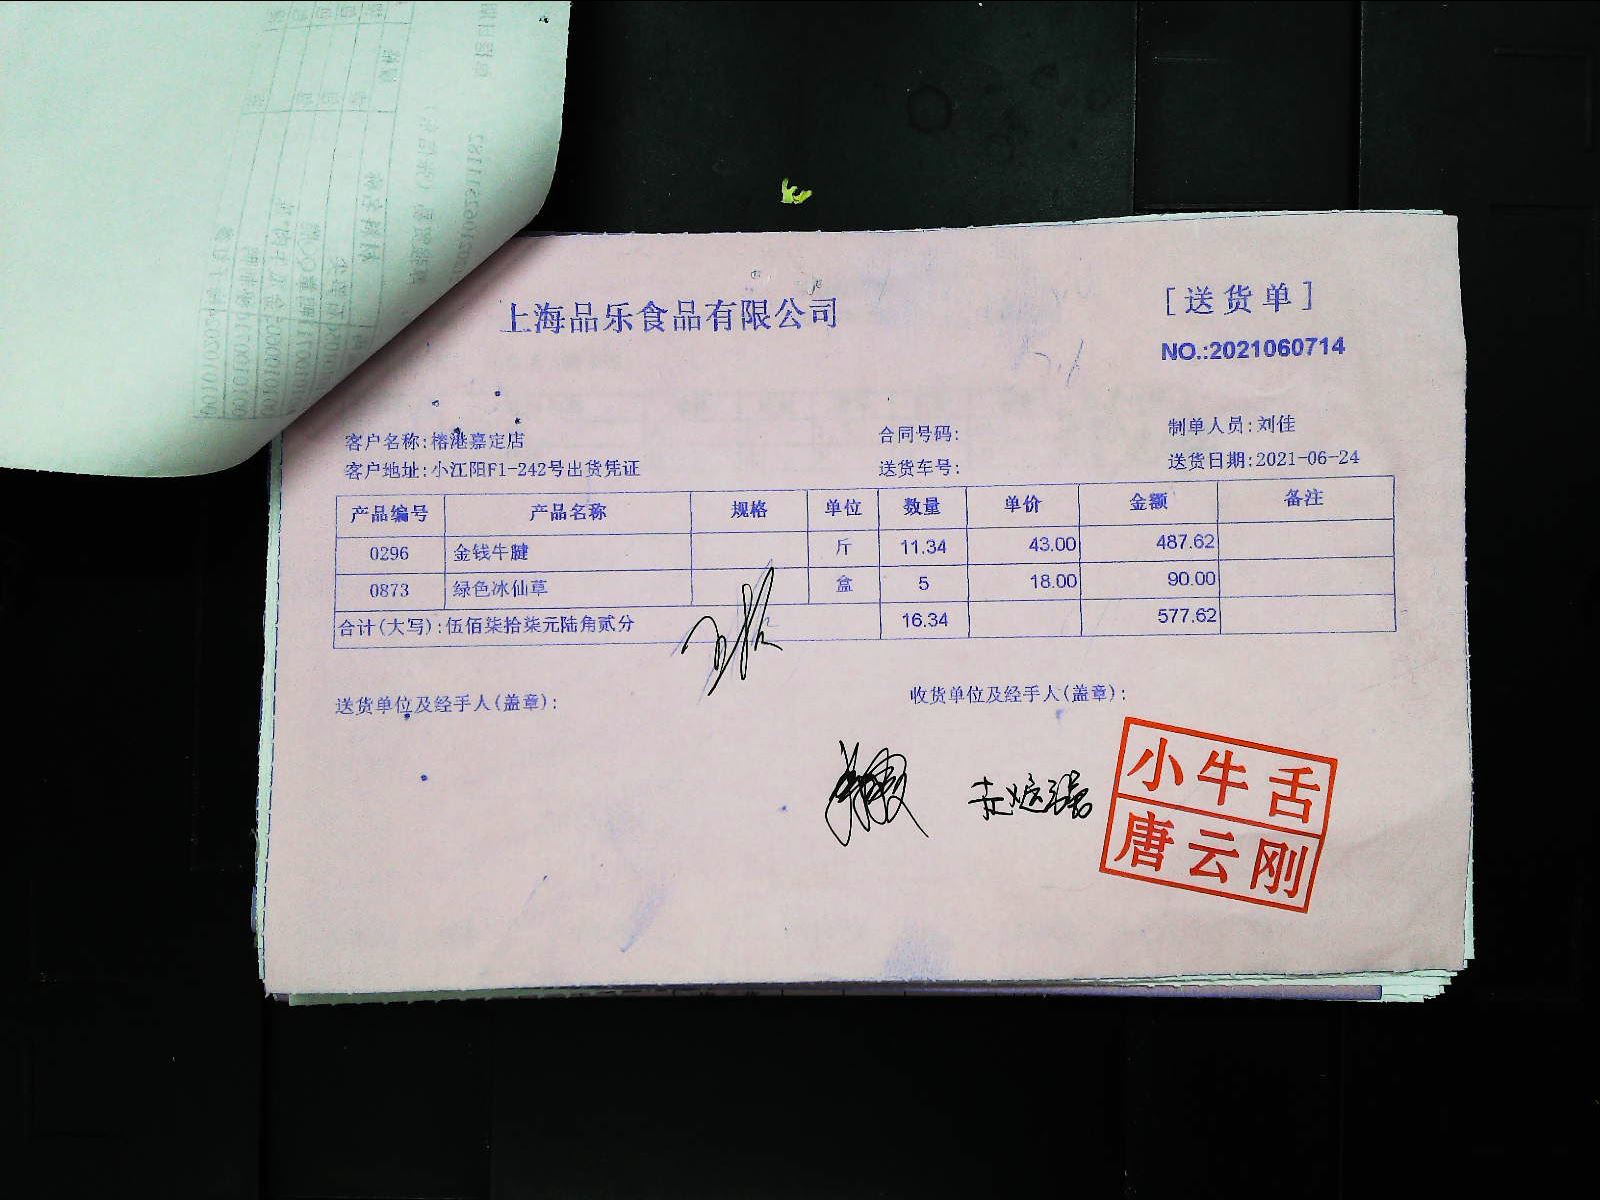 上海品乐食品有限公司
[送货单]
NO.:2021060714
客户名称:榕港嘉定店 合同号码: 制单人员:刘佳
客户地址:小江阳F1-242号出货凭证 送货车号: 送货日期:2021-06-24
产品编号 产品名称 规格 单位 数量 单价 金额 备注
0296 金钱牛腱 斤 11.34 43.00 487.62
0873 绿色冰仙草 盒 5 18.00 90.00
合计(大写):伍佰柒拾柒元陆角贰分 16.34 577.62
送货单位及经手人(盖章): 收货单位及经手人(盖章):
小牛舌
唐云刚